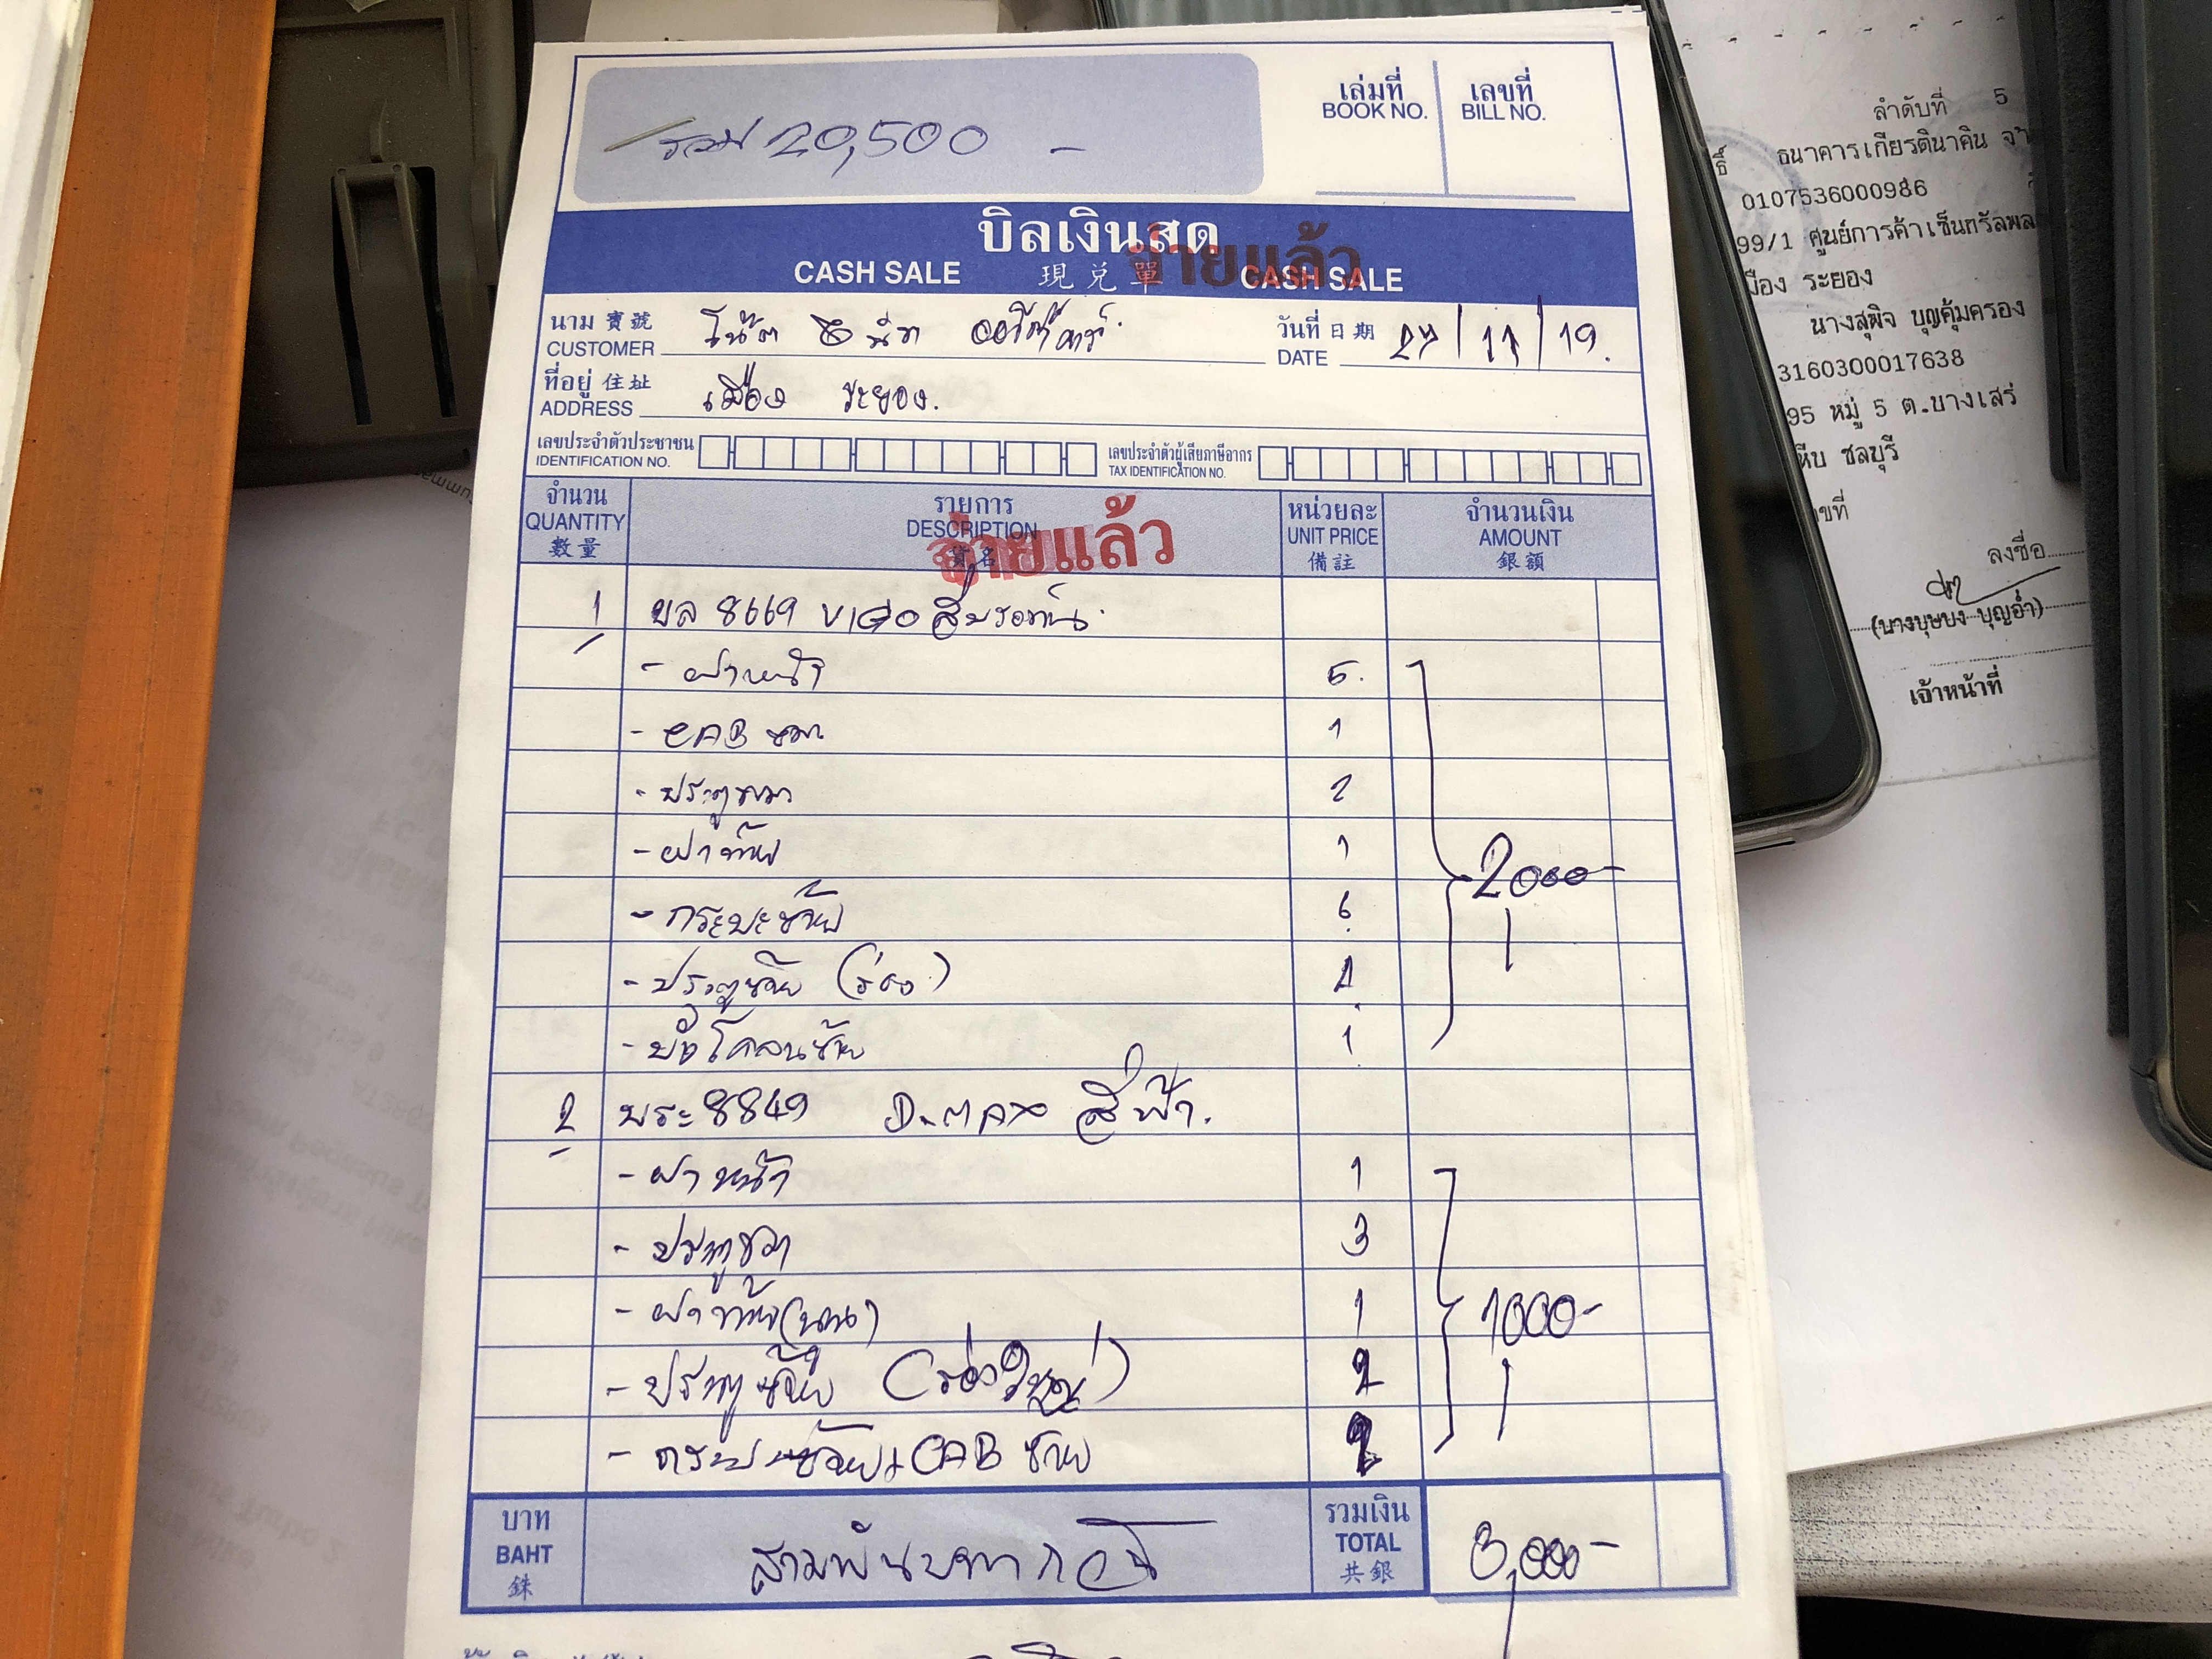 รวม 20,500 -
เล่มที่ เลขที่
BOOK NO. BILL NO.
บิลเงินสด
จ่ายแล้ว
CASH SALE 現兑單 CASH SALE
นาม 寶號 วันที่ 日期 27/11/19.
CUSTOMER โน๊ต DATE
ที่อยู่ 住址 เมือง ระยอง.
ADDRESS
เลขประจำตัวประชาชน เลขประจำตัวผู้เสียภาษีอากร
IDENTIFICATION NO. TAX IDENTIFICATION NO.
จำนวน รายการ หน่วยละ จำนวนเงิน
QUANTITY DESCRIPTION UNIT PRICE AMOUNT
數量 貨名 備註 銀額
จ่ายแล้ว
1 ผล 8669 VIGO สีบรอนซ์
- ฝาหน้า 5.
- CAB ขวา 1
- ประตูขวา 2
- ฝาท้าย 1
2000-
- กระบะซ้าย 6
- ประตูซ้าย (รอง) 1
- บังโคลนซ้าย 1
2 พระ 8849 D-MAX สีฟ้า.
- ฝาหน้า 1
- ประตูขวา 3
- ฝาท้าย (บน) 1 1000-
- ประตูซ้าย 2
- กระบะซ้าย + CAB ซ้าย 2
บาท รวมเงิน
BAHT สามพันบาทถ้วน TOTAL 3,000-
銖 共銀
ลำดับที่ 5
ธนาคารเกียรตินาคิน
0107536000986
99/1 ศูนย์การค้าเซ็นทรัลพล
มือง ระยอง
นางสุพิจ บุญคุ้มครอง
3160300017638
95 หมู่ 5 ต.บางเสร่
หีบ ชลบุรี
ขที่
ลงชื่อ
(นางบุษบง บุญอ่ำ)
เจ้าหน้าที่